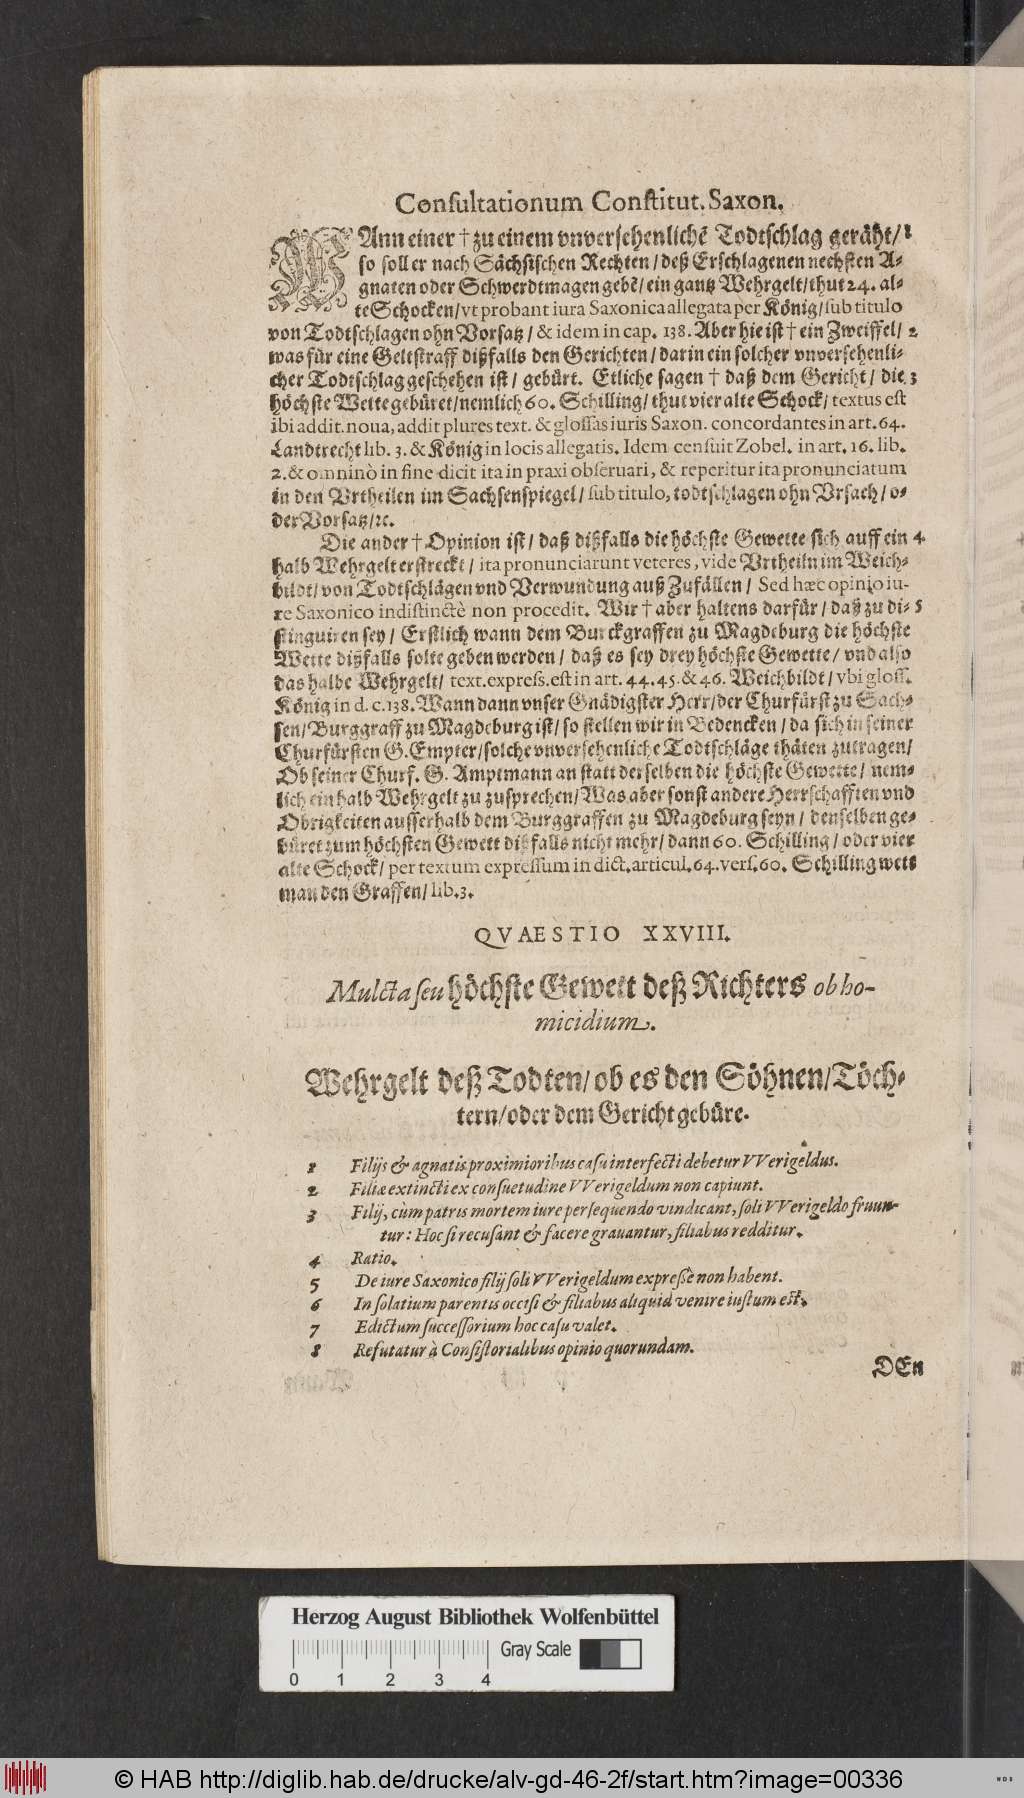 Conſultationum Conſtitut. Saxon.
WAnn einer † zu einem vnverſehenlichẽ Todtſchlag geräht/ 1
ſo ſoll er nach Sächſiſchen Rechten/ deß Erſchlagenen nechſten A-
gnaten oder Schwerdtmagen gebẽ/ ein gantz Wehrgelt/ thut 24. al-
te Schocken/ vt probant iura Saxonica allegata per König/ ſub titulo
von Todtſchlagen ohn Vorſatz/ & idem in cap. 138. Aber hie iſt † ein Zweiffel/ 2
was für eine Geltſtraff dißfalls den Gerichten/ darin ein ſolcher vnverſehenli-
cher Todtſchlag geſchehen iſt/ gebürt. Etliche ſagen † daß dem Gericht/ die 3
höchſte Wette gebüret/ nemlich 60. Schilling/ thut vier alte Schock/ textus eſt
ibi addit. noua, addit plures text. & gloſſas iuris Saxon. concordantes in art. 64.
Landtrecht lib. 3. & König in locis allegatis. Idem cenſuit Zobel. in art. 16. lib.
2. & omninò in fine dicit ita in praxi obſeruari, & reperitur ita pronunciatum
in den Vrtheilen im Sachſenſpiegel/ ſub titulo, todtſchlagen ohn Vrſach/ o-
der Vorſatz/ ꝛc.
Die ander † Opinion iſt/ daß dißfalls die höchſte Gewette ſich auff ein 4
halb Wehrgelt erſtreckt/ ita pronunciarunt veteres, vide Vrtheiln im Weich-
bildt/ von Todtſchlägen vnd Verwundung auß Zufällen/ Sed hæc opinio iu-
re Saxonico indiſtinctè non procedit. Wir † aber haltens darfür/ daß zu di- 5
ſtinguiren ſey/ Erſtlich wann dem Burckgraffen zu Magdeburg die höchſte
Wette dißfalls ſolte geben werden/ daß es ſey drey höchſte Gewette/ vnd alſo
das halbe Wehrgelt/ text. expreſs. eſt in art. 44. 45. & 46. Weichbildt/ vbi gloſſ.
König in d. c. 138. Wann dann vnſer Gnädigſter Herr/ der Churfürſt zu Sach-
ſen/ Burggraff zu Magdeburg iſt/ ſo ſtellen wir in Bedencken/ da ſich in ſeiner
Churfürſten G. Empter/ ſolche vnverſehenliche Todtſchläge thäten zutragen/
Ob ſeiner Churf. G. Amptmann an ſtatt derſelben die höchſte Gewette/ nem-
lich ein halb Wehrgelt zu zuſprechen/ Was aber ſonſt andere Herrſchafften vnd
Obrigkeiten auſſerhalb dem Burggraffen zu Magdeburg ſeyn/ denſelben ge-
büret zum höchſten Gewett dißfalls nicht mehr/ dann 60. Schilling/ oder vier
alte Schock/ per textum expreſſum in dict. articul. 64. verſ. 60. Schilling wett
man den Graffen/ lib. 3.
QVAESTIO XXVIII.
Mulcta ſeu höchſte Gewett deß Richters ob ho-
micidium.
Wehrgelt deß Todten/ ob es den Söhnen/ Töch-
tern/ oder dem Gericht gebüre.
1 Filijs & agnatis proximioribus caſu interfecti debetur VVerigeldus.
2 Filiæ extincti ex conſuetudine VVerigeldum non capiunt.
3 Filij, cùm patris mortem iure perſequendo vindicant, ſoli VVerigeldo fruun-
tur: Hoc ſi recuſant & facere grauantur, filiabus redditur.
4 Ratio.
5 De iure Saxonico filij ſoli VVerigeldum expreſſè non habent.
6 In ſolatium parentis occiſi & filiabus aliquid venire iuſtum eſt.
7 Edictum ſucceſſorium hoc caſu valet.
8 Refutatur à Conſiſtorialibus opinio quorundam.
DEn
Herzog August Bibliothek Wolfenbüttel
Gray Scale
0 1 2 3 4
© HAB http://diglib.hab.de/drucke/alv-gd-46-2f/start.htm?image=00336